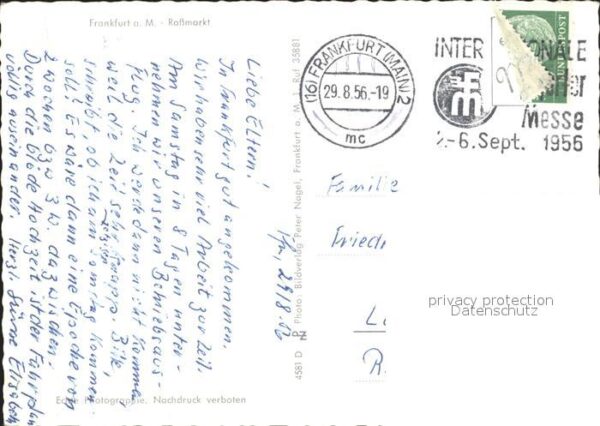 Frankfurt a. M. - Roßmarkt
Ffm, 29/8.56
Liebe Eltern!
In Frankfurt gut angekommen.
Wir haben sehr viel Arbeit zur Zeit.
Am Samstag in 8 Tagen unter-
nehmen wir unseren Betriebsaus-
flug. Ich werde dann nicht kommen,
weil die Zeit sehr knapp. Bitte,
schreibt ob ich am Sonntag kommen
soll? Es wäre dann eine Epoche von
2 Wochen bzw 3 W. dazwischen.
Durch die blöde Hochzeit ist der Fahrplan
völlig auseinander. Herzl. Grüsse Elisabeth
Echte Photographie, Nachdruck verboten
4581 D Photo: Bildverlag Peter Nagel, Frankfurt a. M. 1, Ruf 35881
(16) FRANKFURT (MAIN) 2
29.8.56.-19
mc
INTER ONALE
Messe
2.-6. Sept. 1956
DEUTSCHE BUNDESPOST
Familie
Friedr
privacy protection
Datenschutz